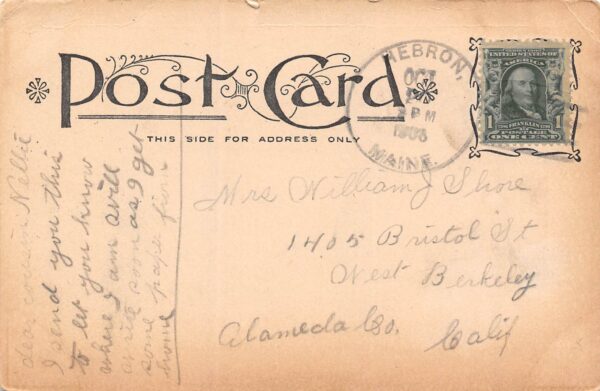 Post Card
THIS SIDE FOR ADDRESS ONLY
HEBRON,
OCT
PM
MAINE.
SERIES 1902
UNITED STATES OF
AMERICA
FRANKLIN
1 1
POSTAGE
ONE CENT
Mrs William J Shore
1405 Bristol St
West Berkeley
Alameda Co. Calif
dear cousin Nellie
I send you this
to let you know
where I am will
write soon as I get
some paper from
home